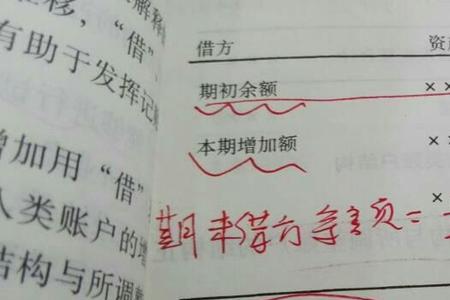 解释
移，“借”、
有助于发挥记
增加用“借”
类账户的增
结构与所调
借方 资
期初余额 ××
本期增加额 ×
×
期末借方余额=